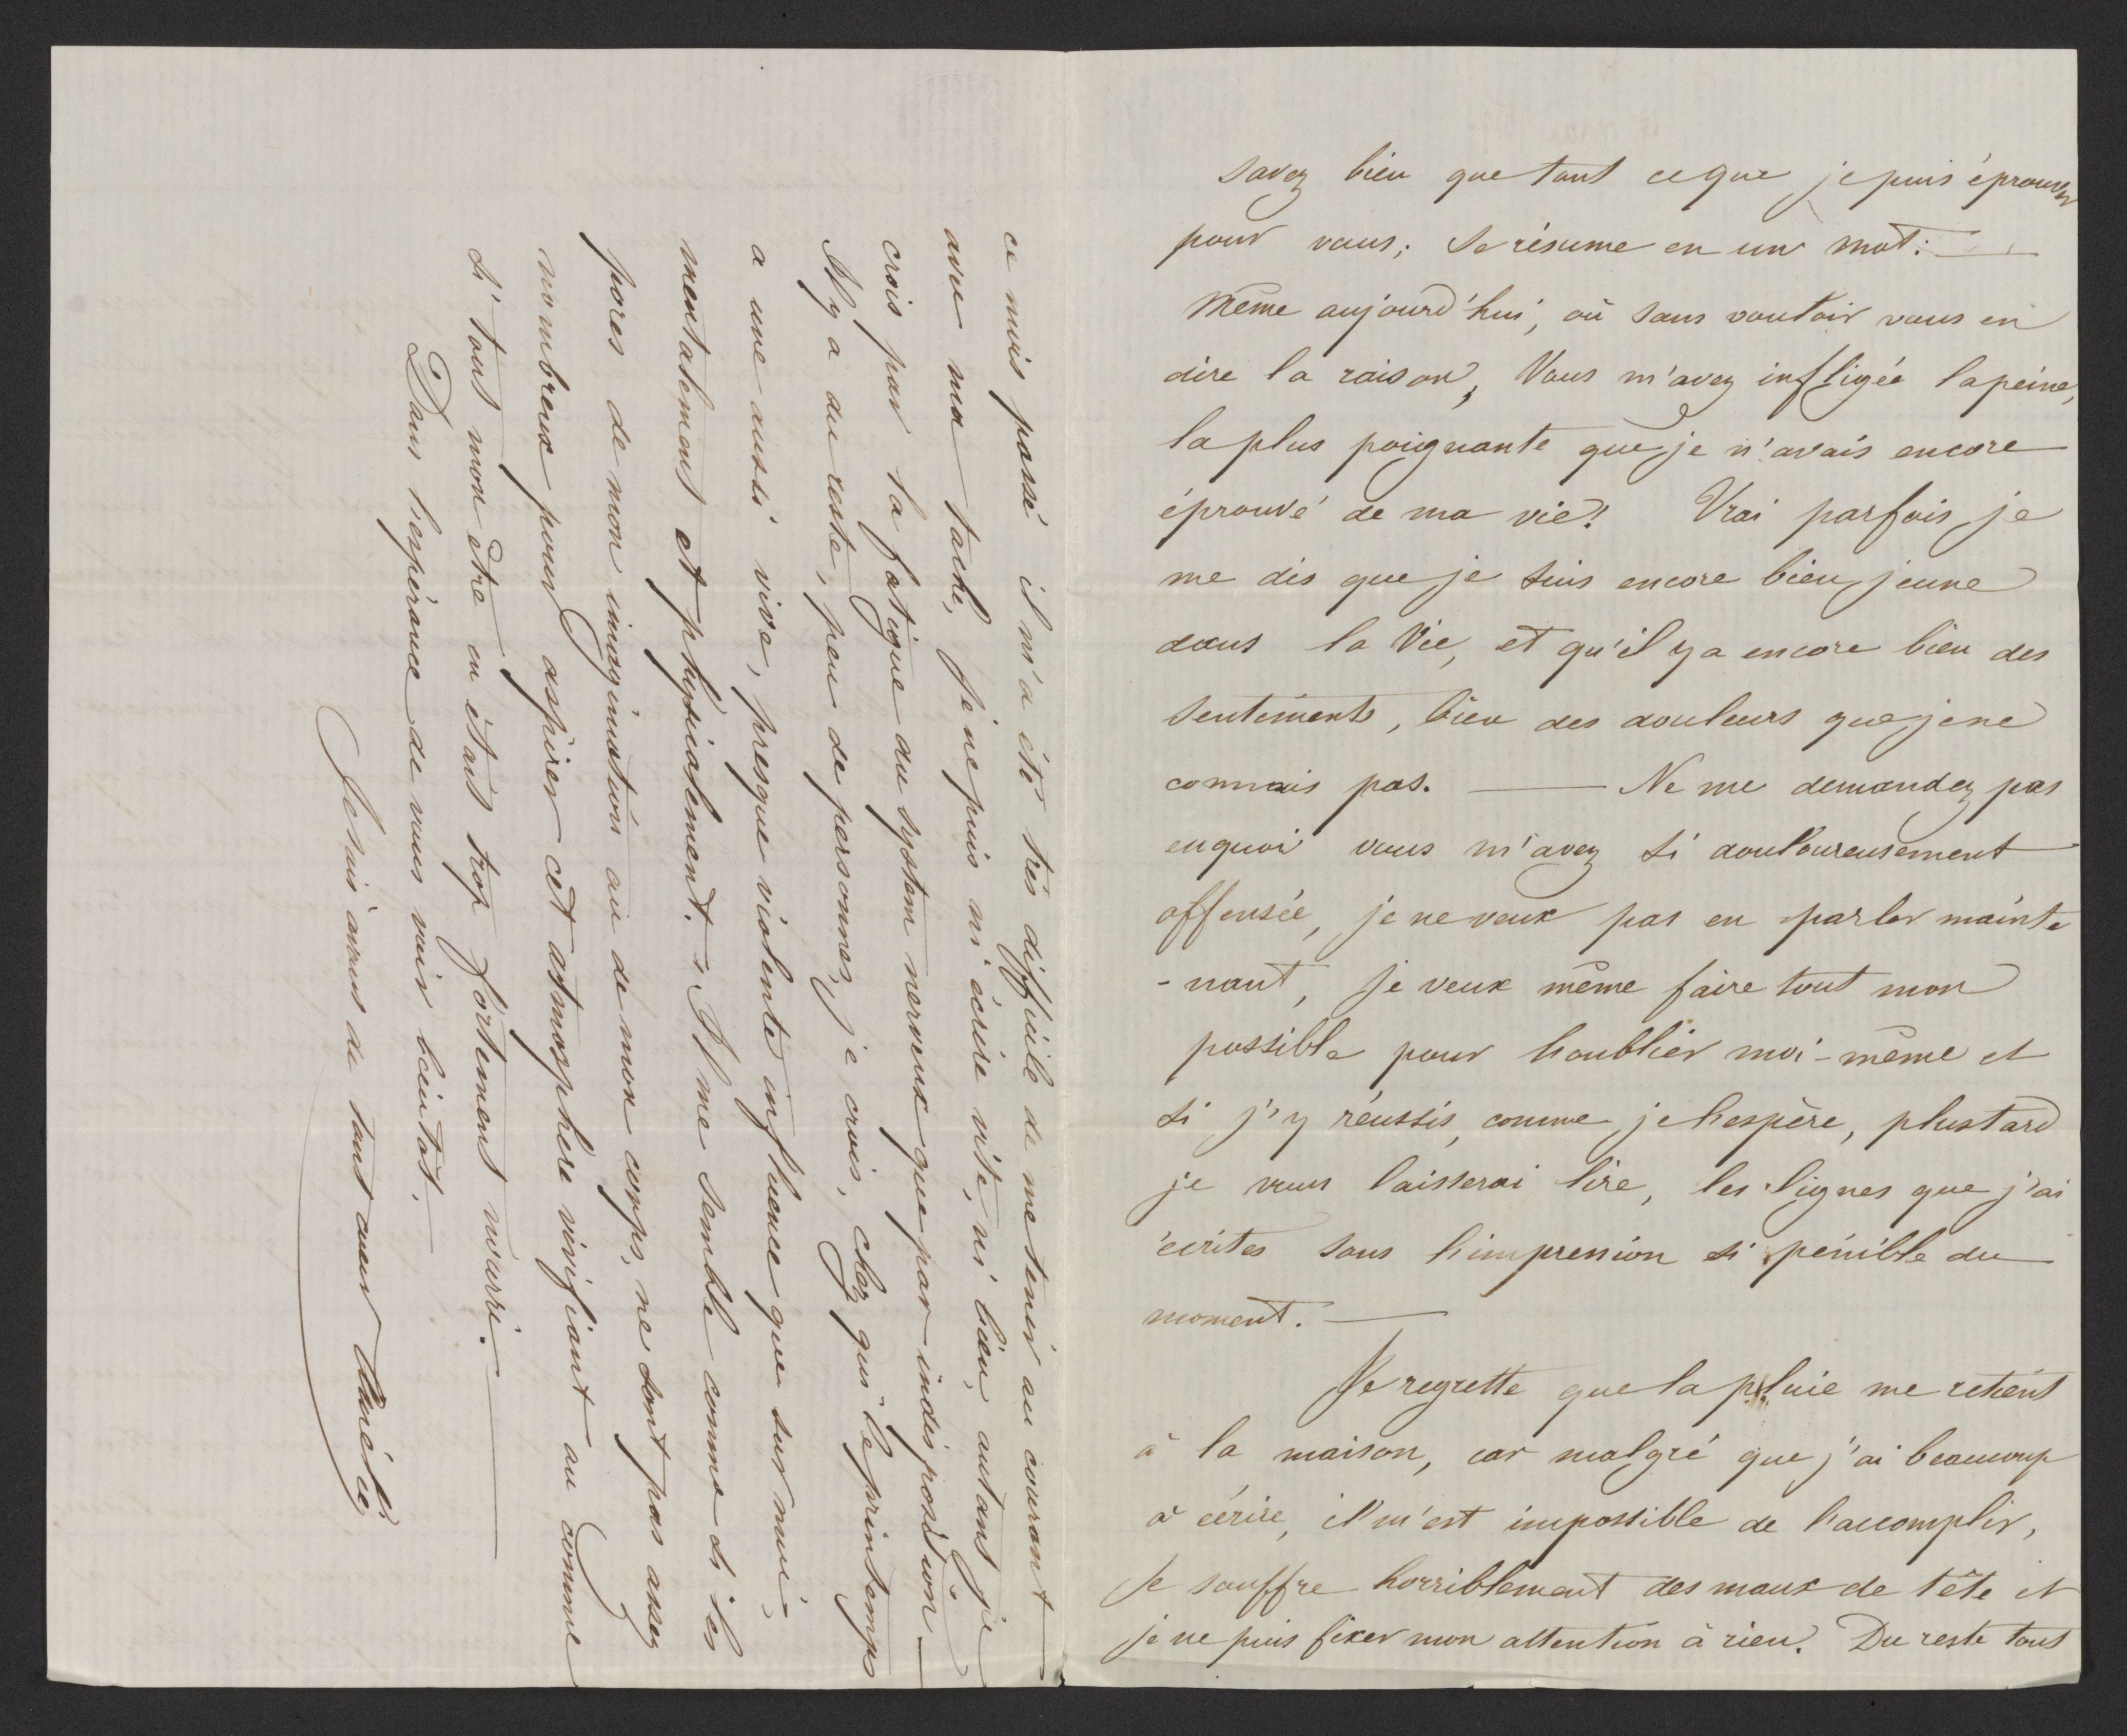 savez bien que tout ce que je puis éprouver
pour vous; se résume en un mot: —
Même aujourd'hui, où sans vouloir vous en
dire la raison, Vous m'avez infligée la peine,
la plus poignante que je n'avais encore
éprouvé de ma vie! Vrai parfois je
me dis que je suis encore bien jeune
dans la Vie, et qu'il y a encore bien des
sentiments, bien des douleurs que je ne
connais pas. — Ne me demandez pas
en quoi vous m'avez si douloureusement
offensée, je ne veux pas en parler mainte
-nant, je veux même faire tout mon
possible pour l'oublier moi-même et
si j'y réussis, comme je l'espère, plus tard
je vous laisserai lire, les lignes que j'ai
écrites sous l'impression si pénible du
moment. —
Je regrette que la pluie me retient
à la maison, car malgré que j'ai beaucoup
à écrire, il m'est impossible de l'accomplir,
Je souffre horriblement des maux de tête et
je ne puis fixer mon attention à rien. Du reste tout
ce mois passé il m'a été très difficile de me tenir au courant
avec ma tache, je ne puis ni écrire vite, ni bien, autant je
crois par la fatigue du system nerveux que par indisposition. —
Il y a du reste, peu de personnes, je crois, chez qui le printemps
a une aussi vive, presque violente influence que sur moi,
mentalement et physicalement. Il me semble comme si les
pores de mon imagination ou de mon corps, ne sont pas assez
nombreux pour aspirer cet atmosphere vivifiant ou comme
si tout mon être en était trop fortement nourri. —
Dans l'espérance de vous voir bientot. —
Je suis avous de tout cœur